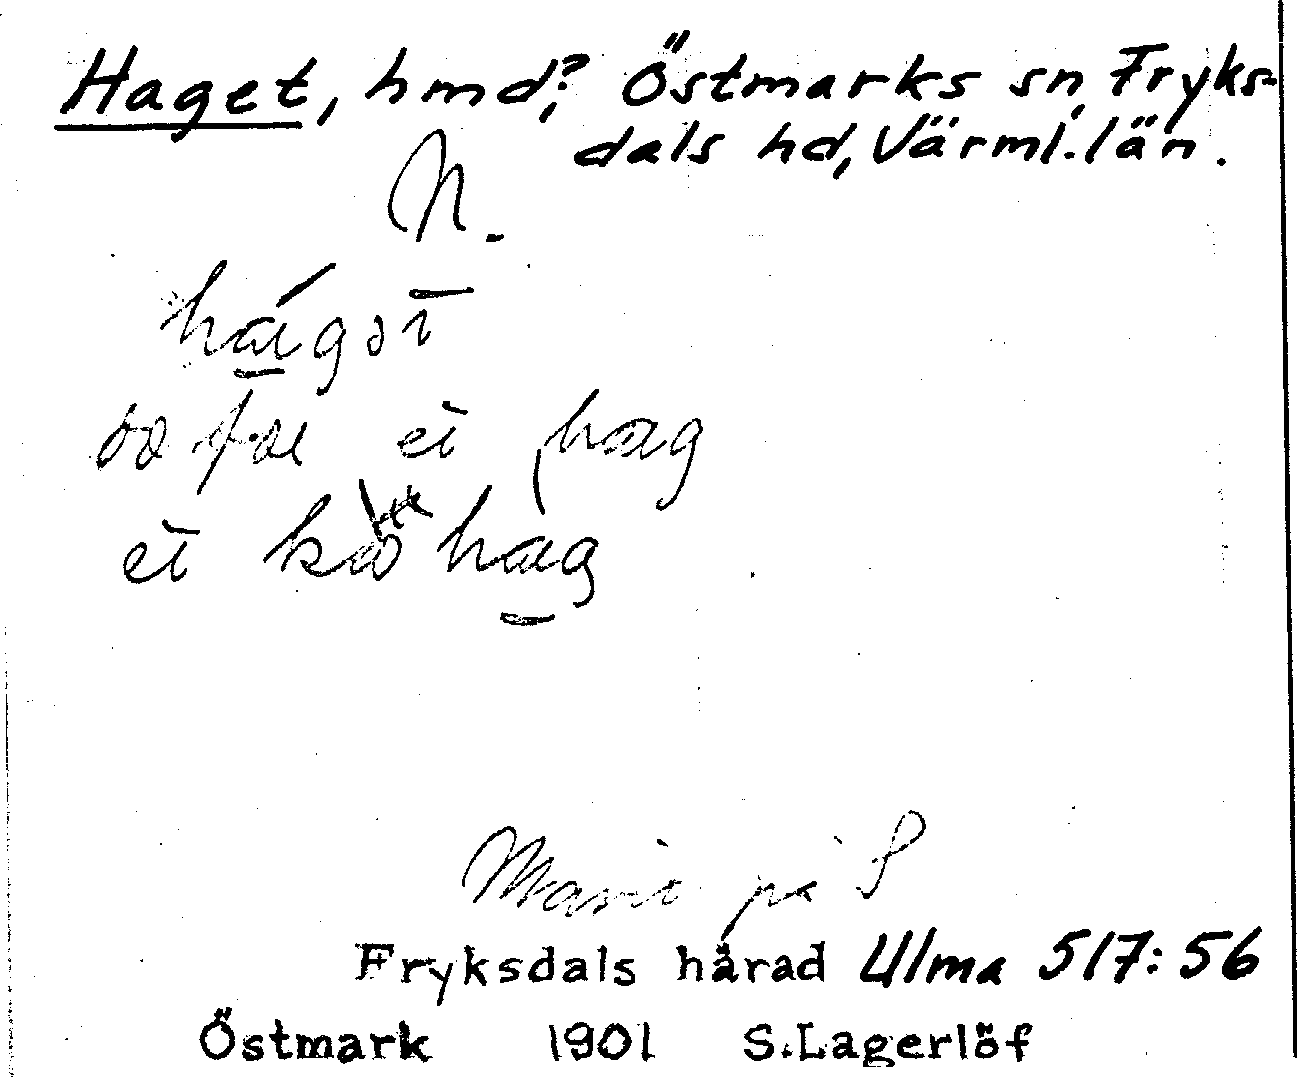 Haget, hmd,? Östmarks sn, Fryks-
dals hd, Värml. län.
N.
hágət
ei hag
ei hag
på S
Fryksdals härad Ulma 517:56
Östmark 1901 S.Lagerlöf